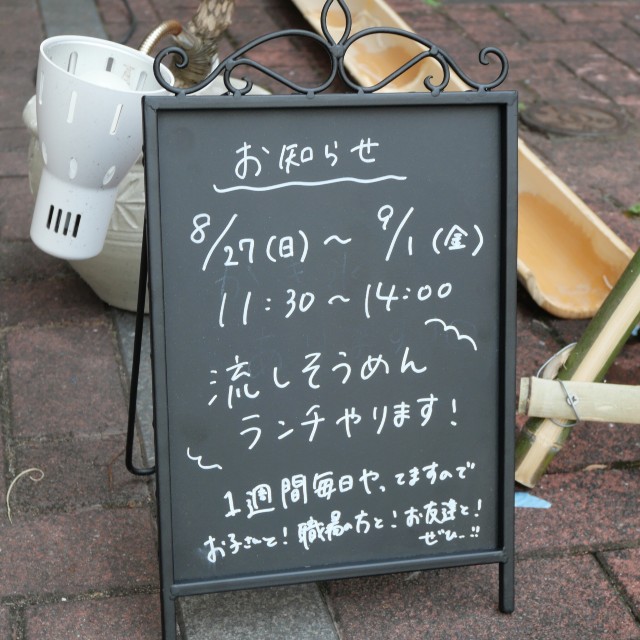 お知らせ
8/27(日)～9/1(金)
11:30～14:00
流しそうめん
ランチやります!
1週間毎日やってますので
お子さんと!職場の方と!お友達と!
ぜひ…!!